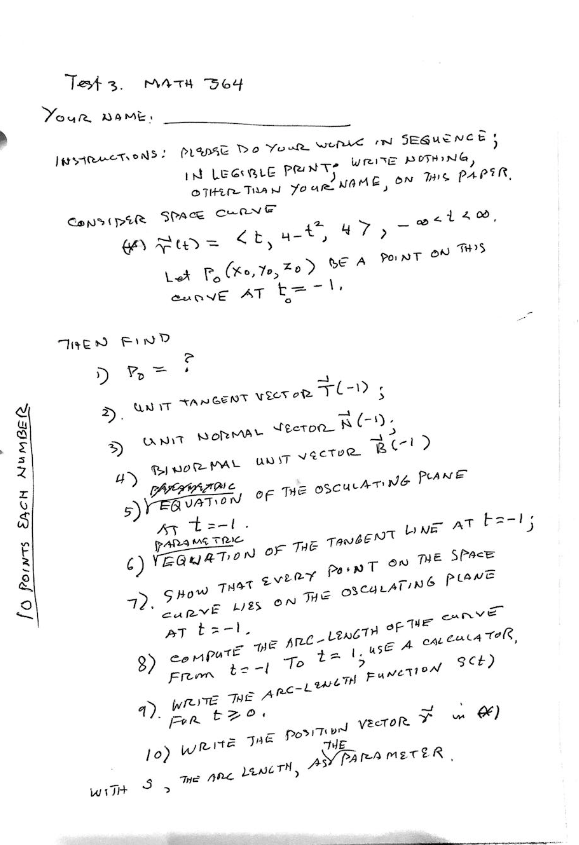 Test 3. MATH 364
YOUR NAME:
INSTRUCTIONS: PLEASE DO YOUR WORK IN SEQUENCE;
IN LEGIBLE PRINT; WRITE NOTHING,
OTHER THAN YOUR NAME, ON THIS PAPER.
CONSIDER SPACE CURVE
(*) r⃗(t) = <t, 4-t², 4>, -∞<t<∞.
Let P₀(x₀, y₀, z₀) BE A POINT ON THIS
CURVE AT t₀ = -1.
THEN FIND
1) P₀ = ?
2). UNIT TANGENT VECTOR T⃗(-1);
3) UNIT NORMAL VECTOR N⃗(-1);
4) BINORMAL UNIT VECTOR B⃗(-1)
5) EQUATION OF THE OSCULATING PLANE
AT t=-1.
PARAMETRIC
6) EQUATION OF THE TANGENT LINE AT t=-1;
7). SHOW THAT EVERY POINT ON THE SPACE
CURVE LIES ON THE OSCULATING PLANE
AT t=-1.
8) COMPUTE THE ARC-LENGTH OF THE CURVE
FROM t=-1 TO t=1; USE A CALCULATOR,
9). WRITE THE ARC-LENGTH FUNCTION S(t)
FOR t≥0.
10) WRITE THE POSITION VECTOR r⃗ in (*)
WITH S, THE ARC LENGTH, AS THE PARAMETER.
10 POINTS EACH NUMBER